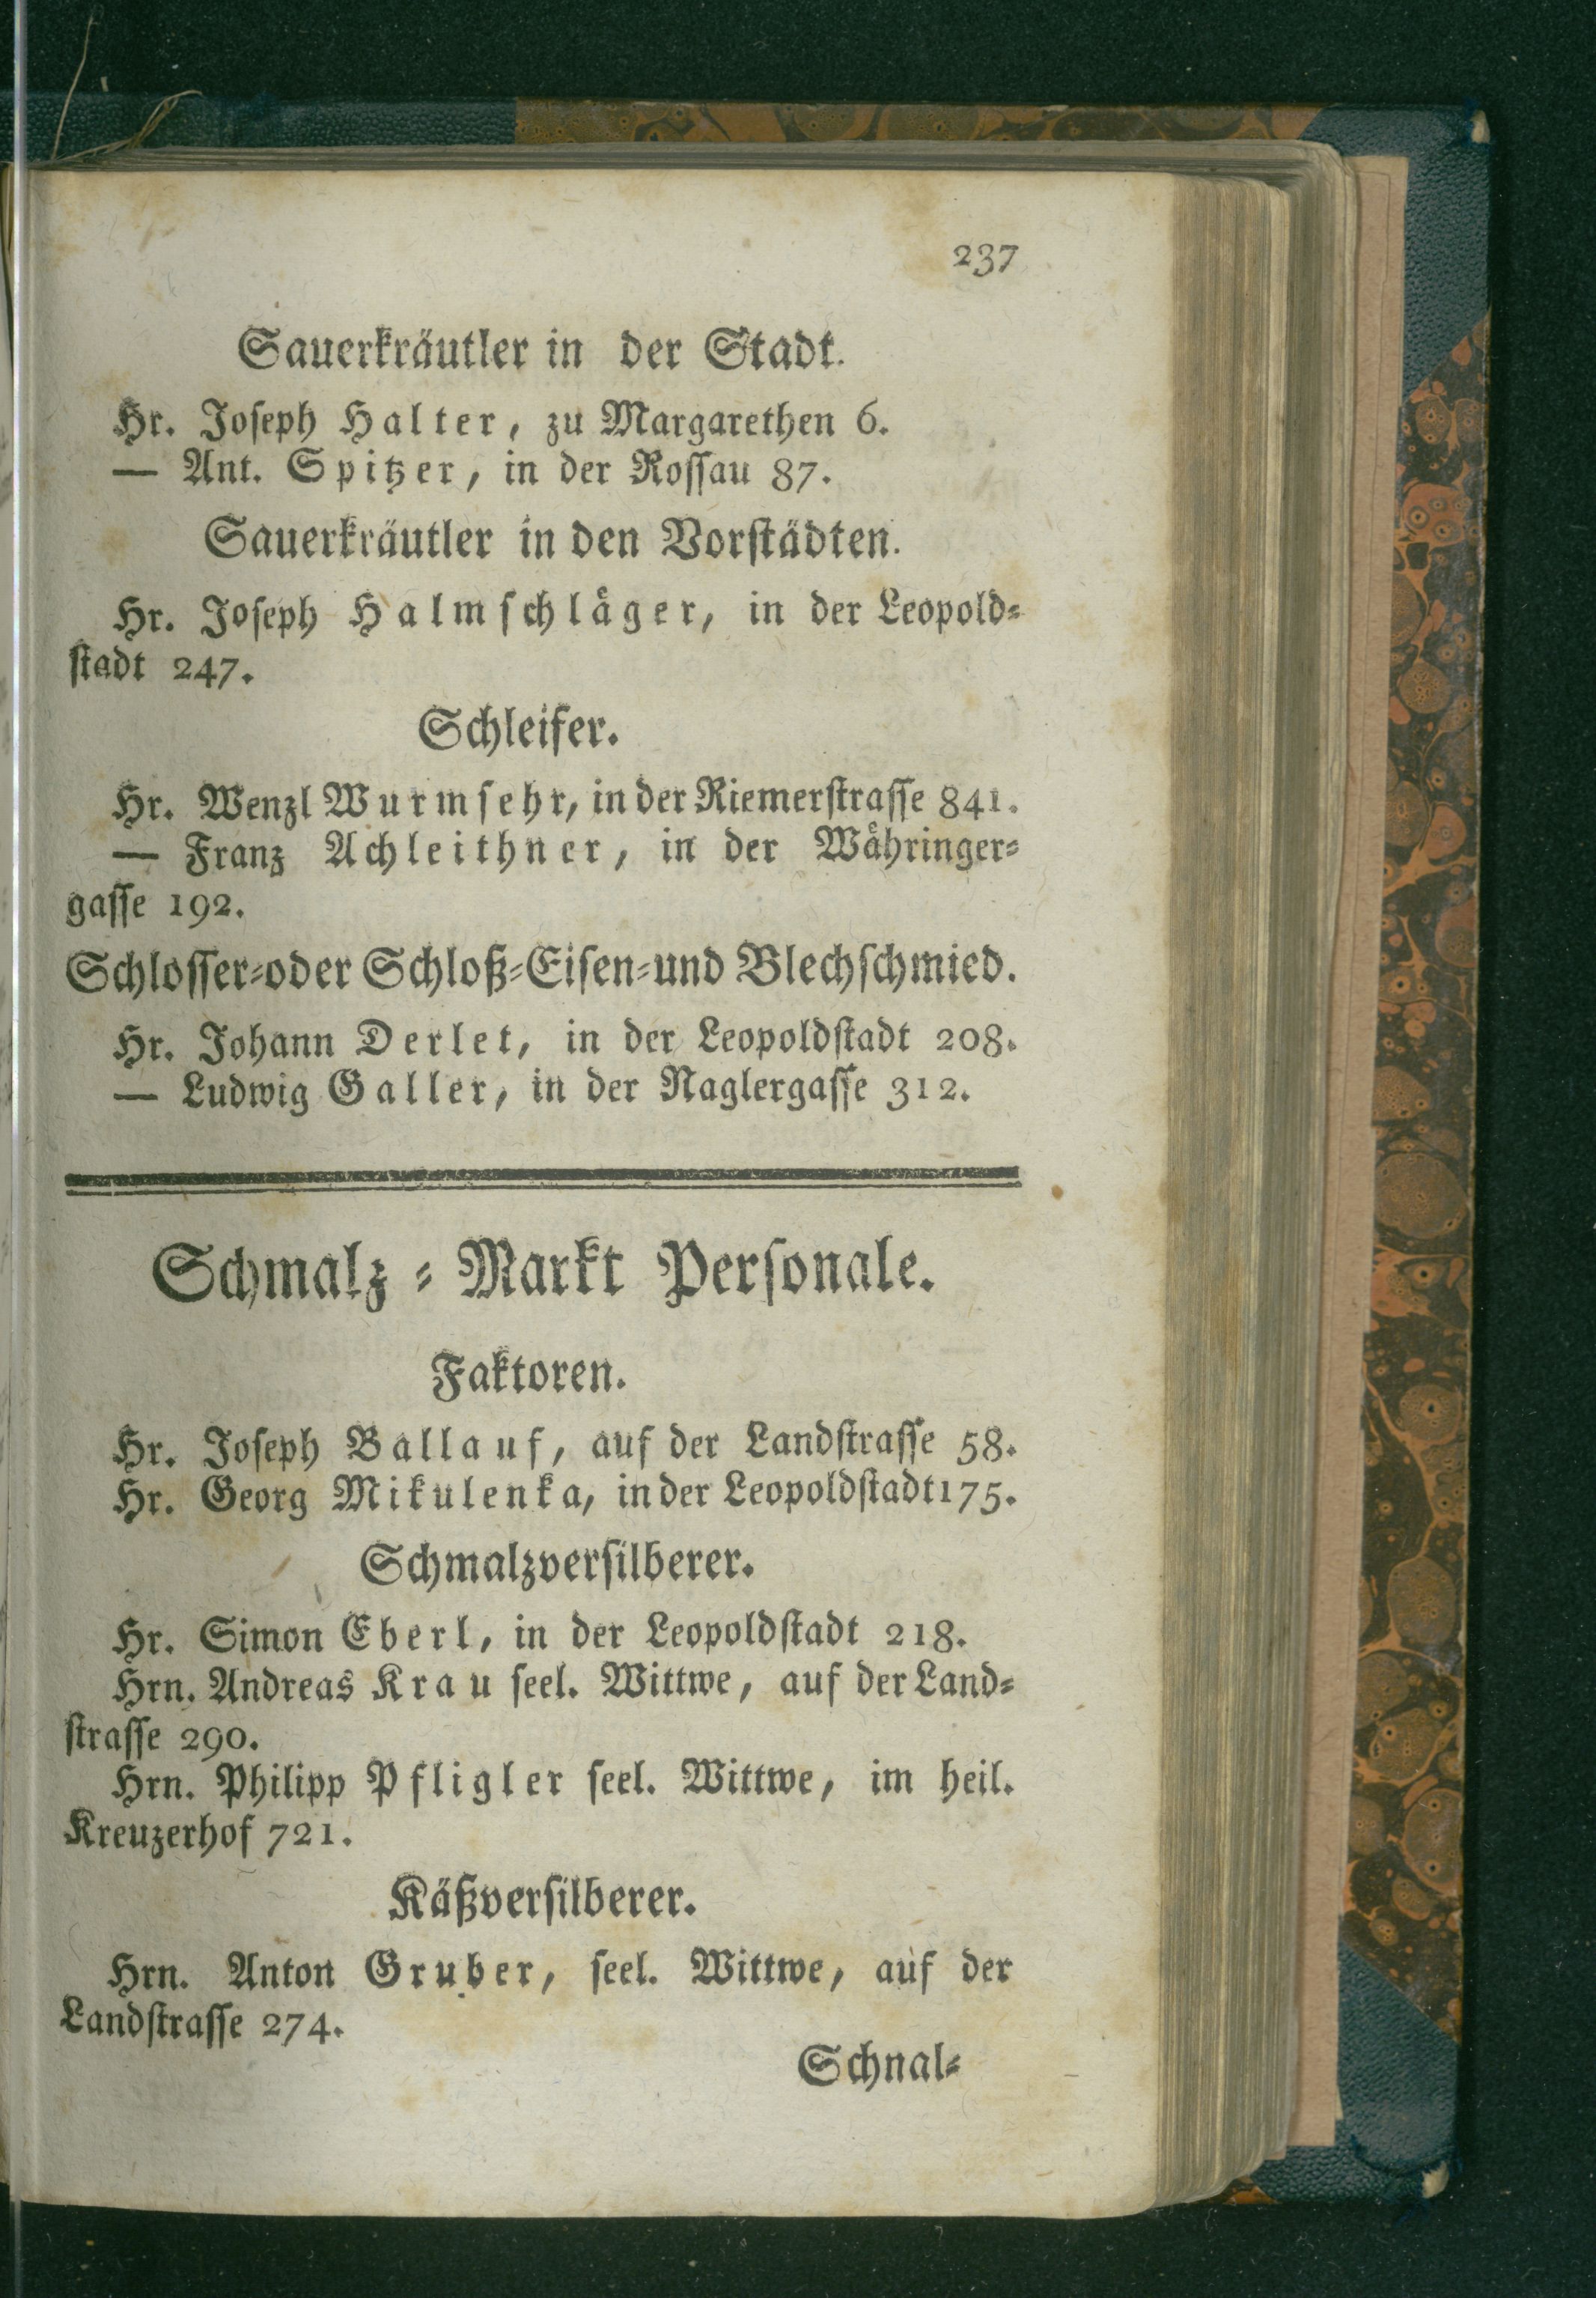 237
Sauerkräutler in der Stadt.
Hr. Joseph Halter, zu Margarethen 6.
— Ant. Spitzer, in der Rossau 87.
Sauerkräutler in den Vorstädten.
Hr. Joseph Halmschläger, in der Leopold-
stadt 247.
Schleifer.
Hr. Wenzl Wurmsehr, in der Riemerstrasse 841.
— Franz Achleithner, in der Währinger-
gasse 192.
Schlosser-oder Schloß-Eisen-und Blechschmied.
Hr. Johann Derlet, in der Leopoldstadt 208.
— Ludwig Galler, in der Naglergasse 312.
Schmalz - Markt Personale.
Faktoren.
Hr. Joseph Ballauf, auf der Landstrasse 58.
Hr. Georg Mikulenka, in der Leopoldstadt 175.
Schmalzversilberer.
Hr. Simon Eberl, in der Leopoldstadt 218.
Hrn. Andreas Krau seel. Wittwe, auf der Land-
strasse 290.
Hrn. Philipp Pfligler seel. Wittwe, im heil.
Kreuzerhof 721.
Käßversilberer.
Hrn. Anton Gruber, seel. Wittwe, auf der
Landstrasse 274.
Schnal-